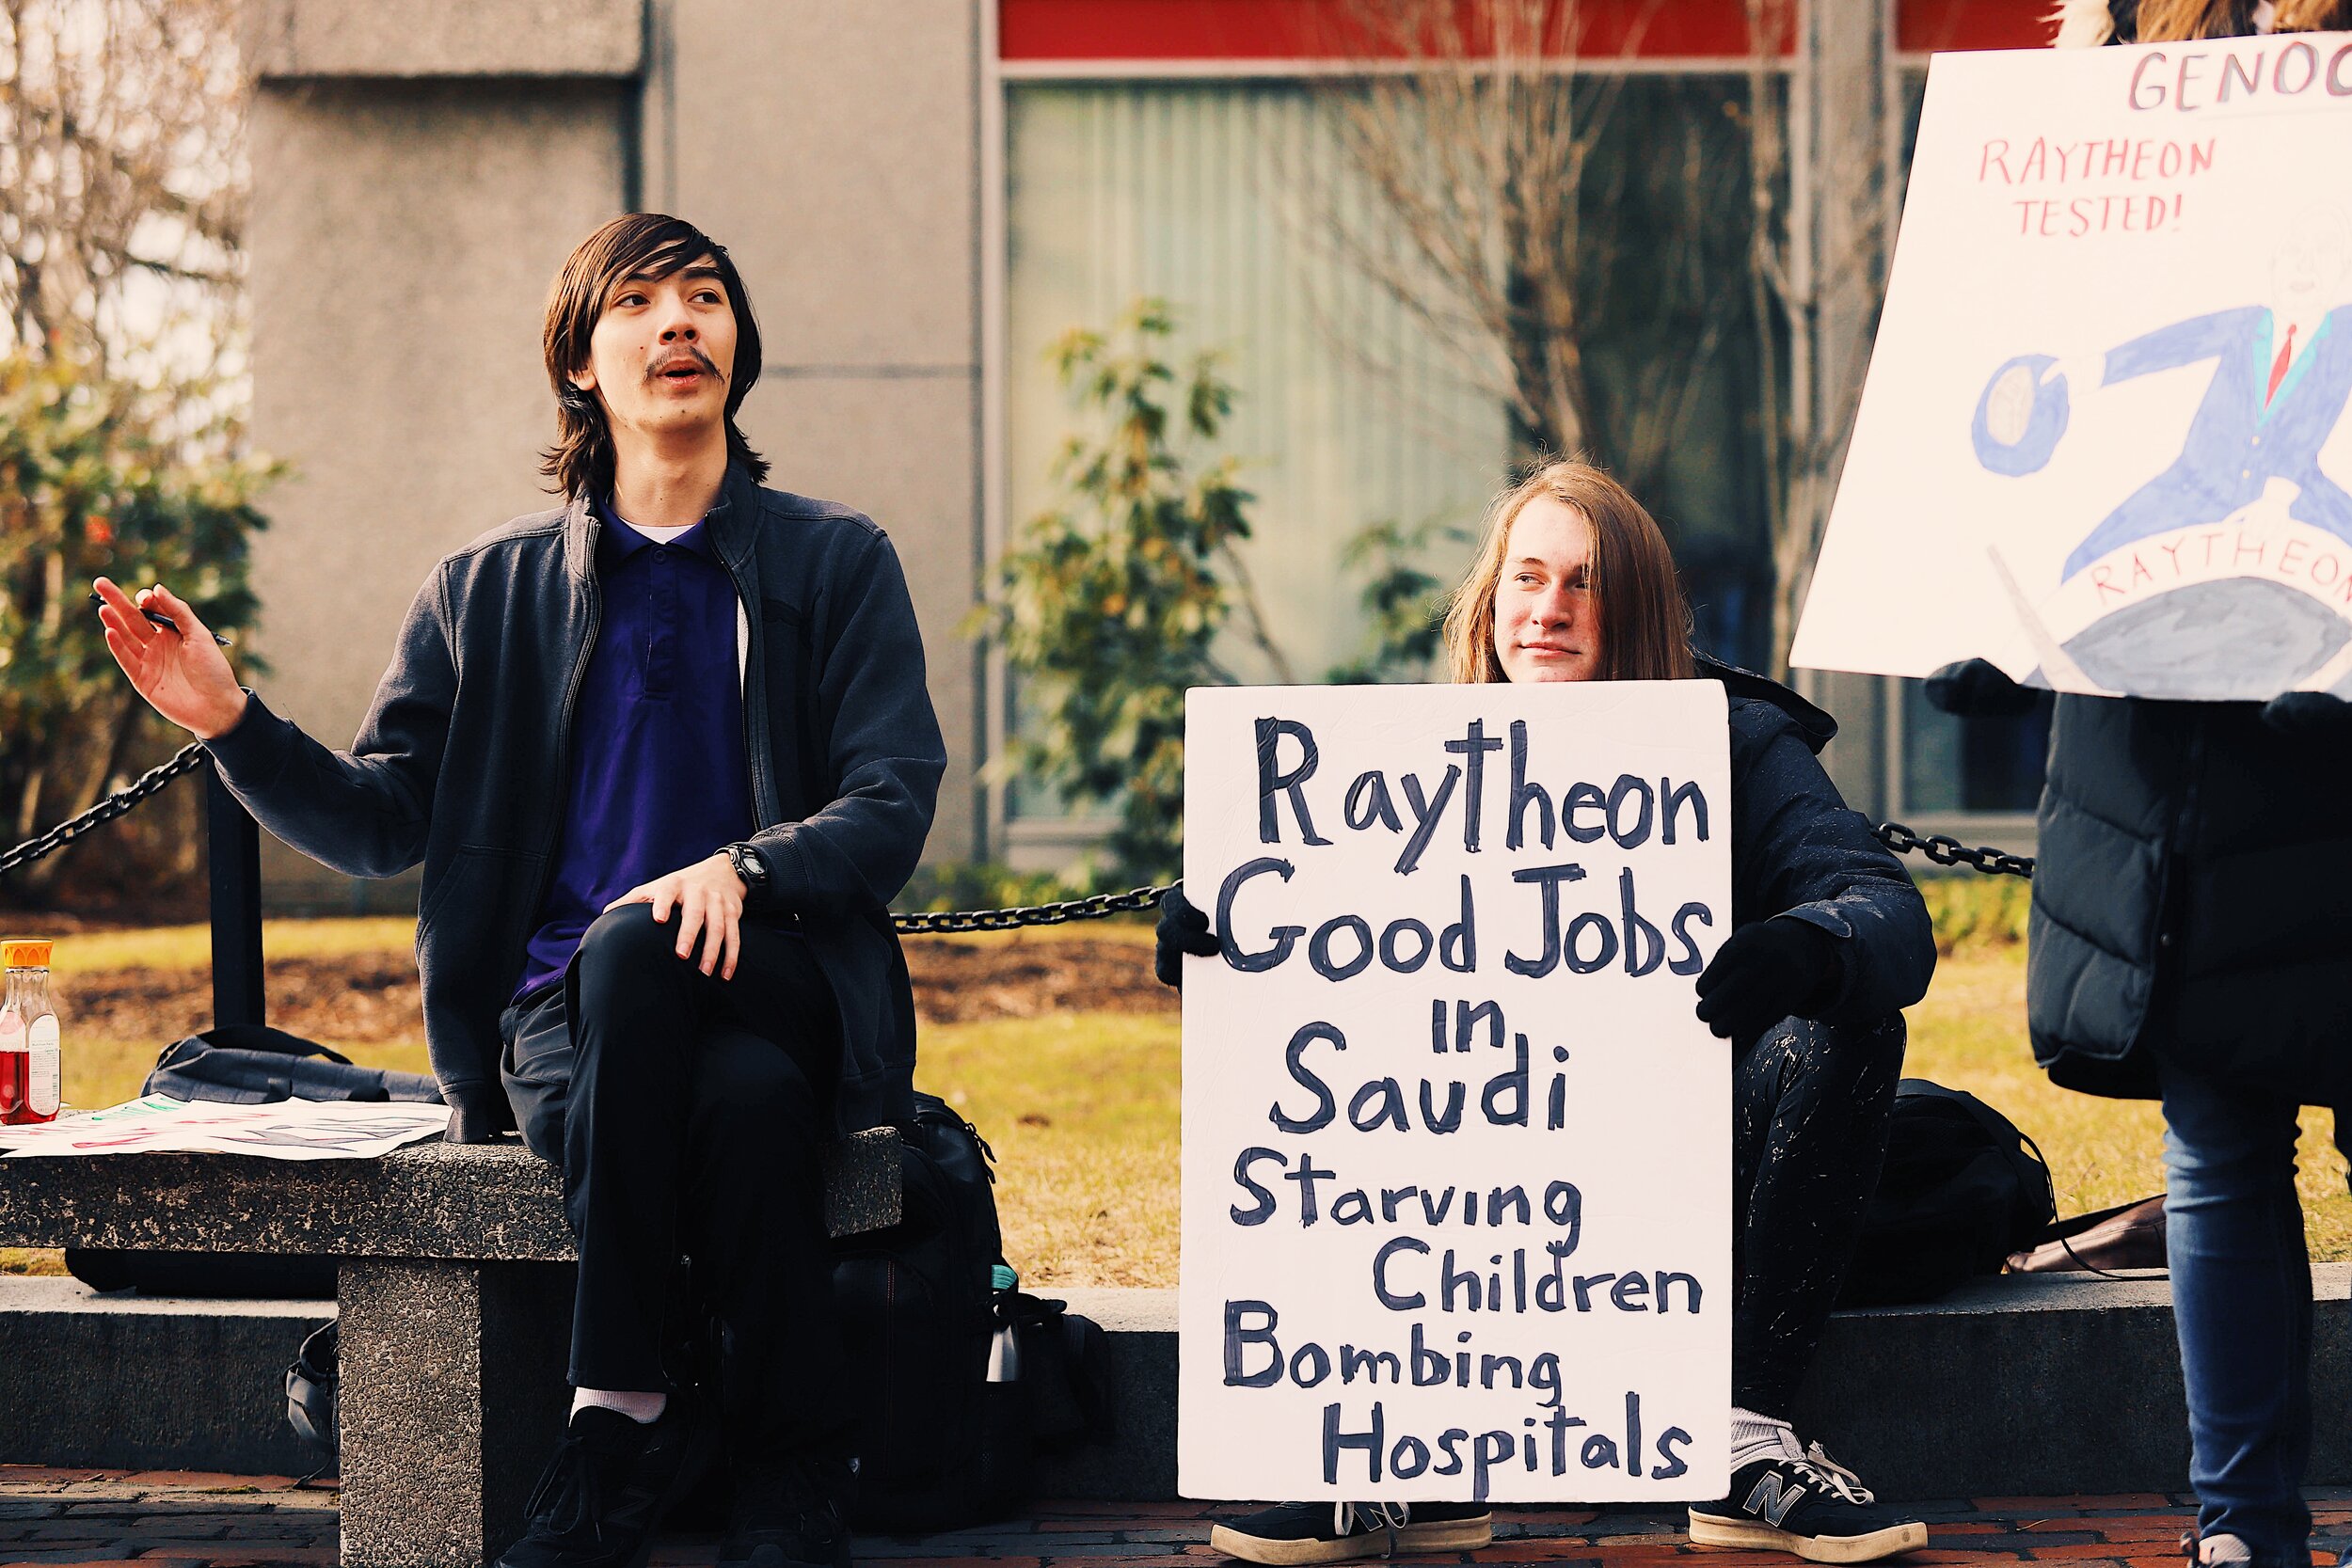 Raytheon
Good Jobs
in
Saudi
Starving
Children
Bombing
Hospitals
GENOC
RAYTHEON
TESTED!
RAYTHEON
N